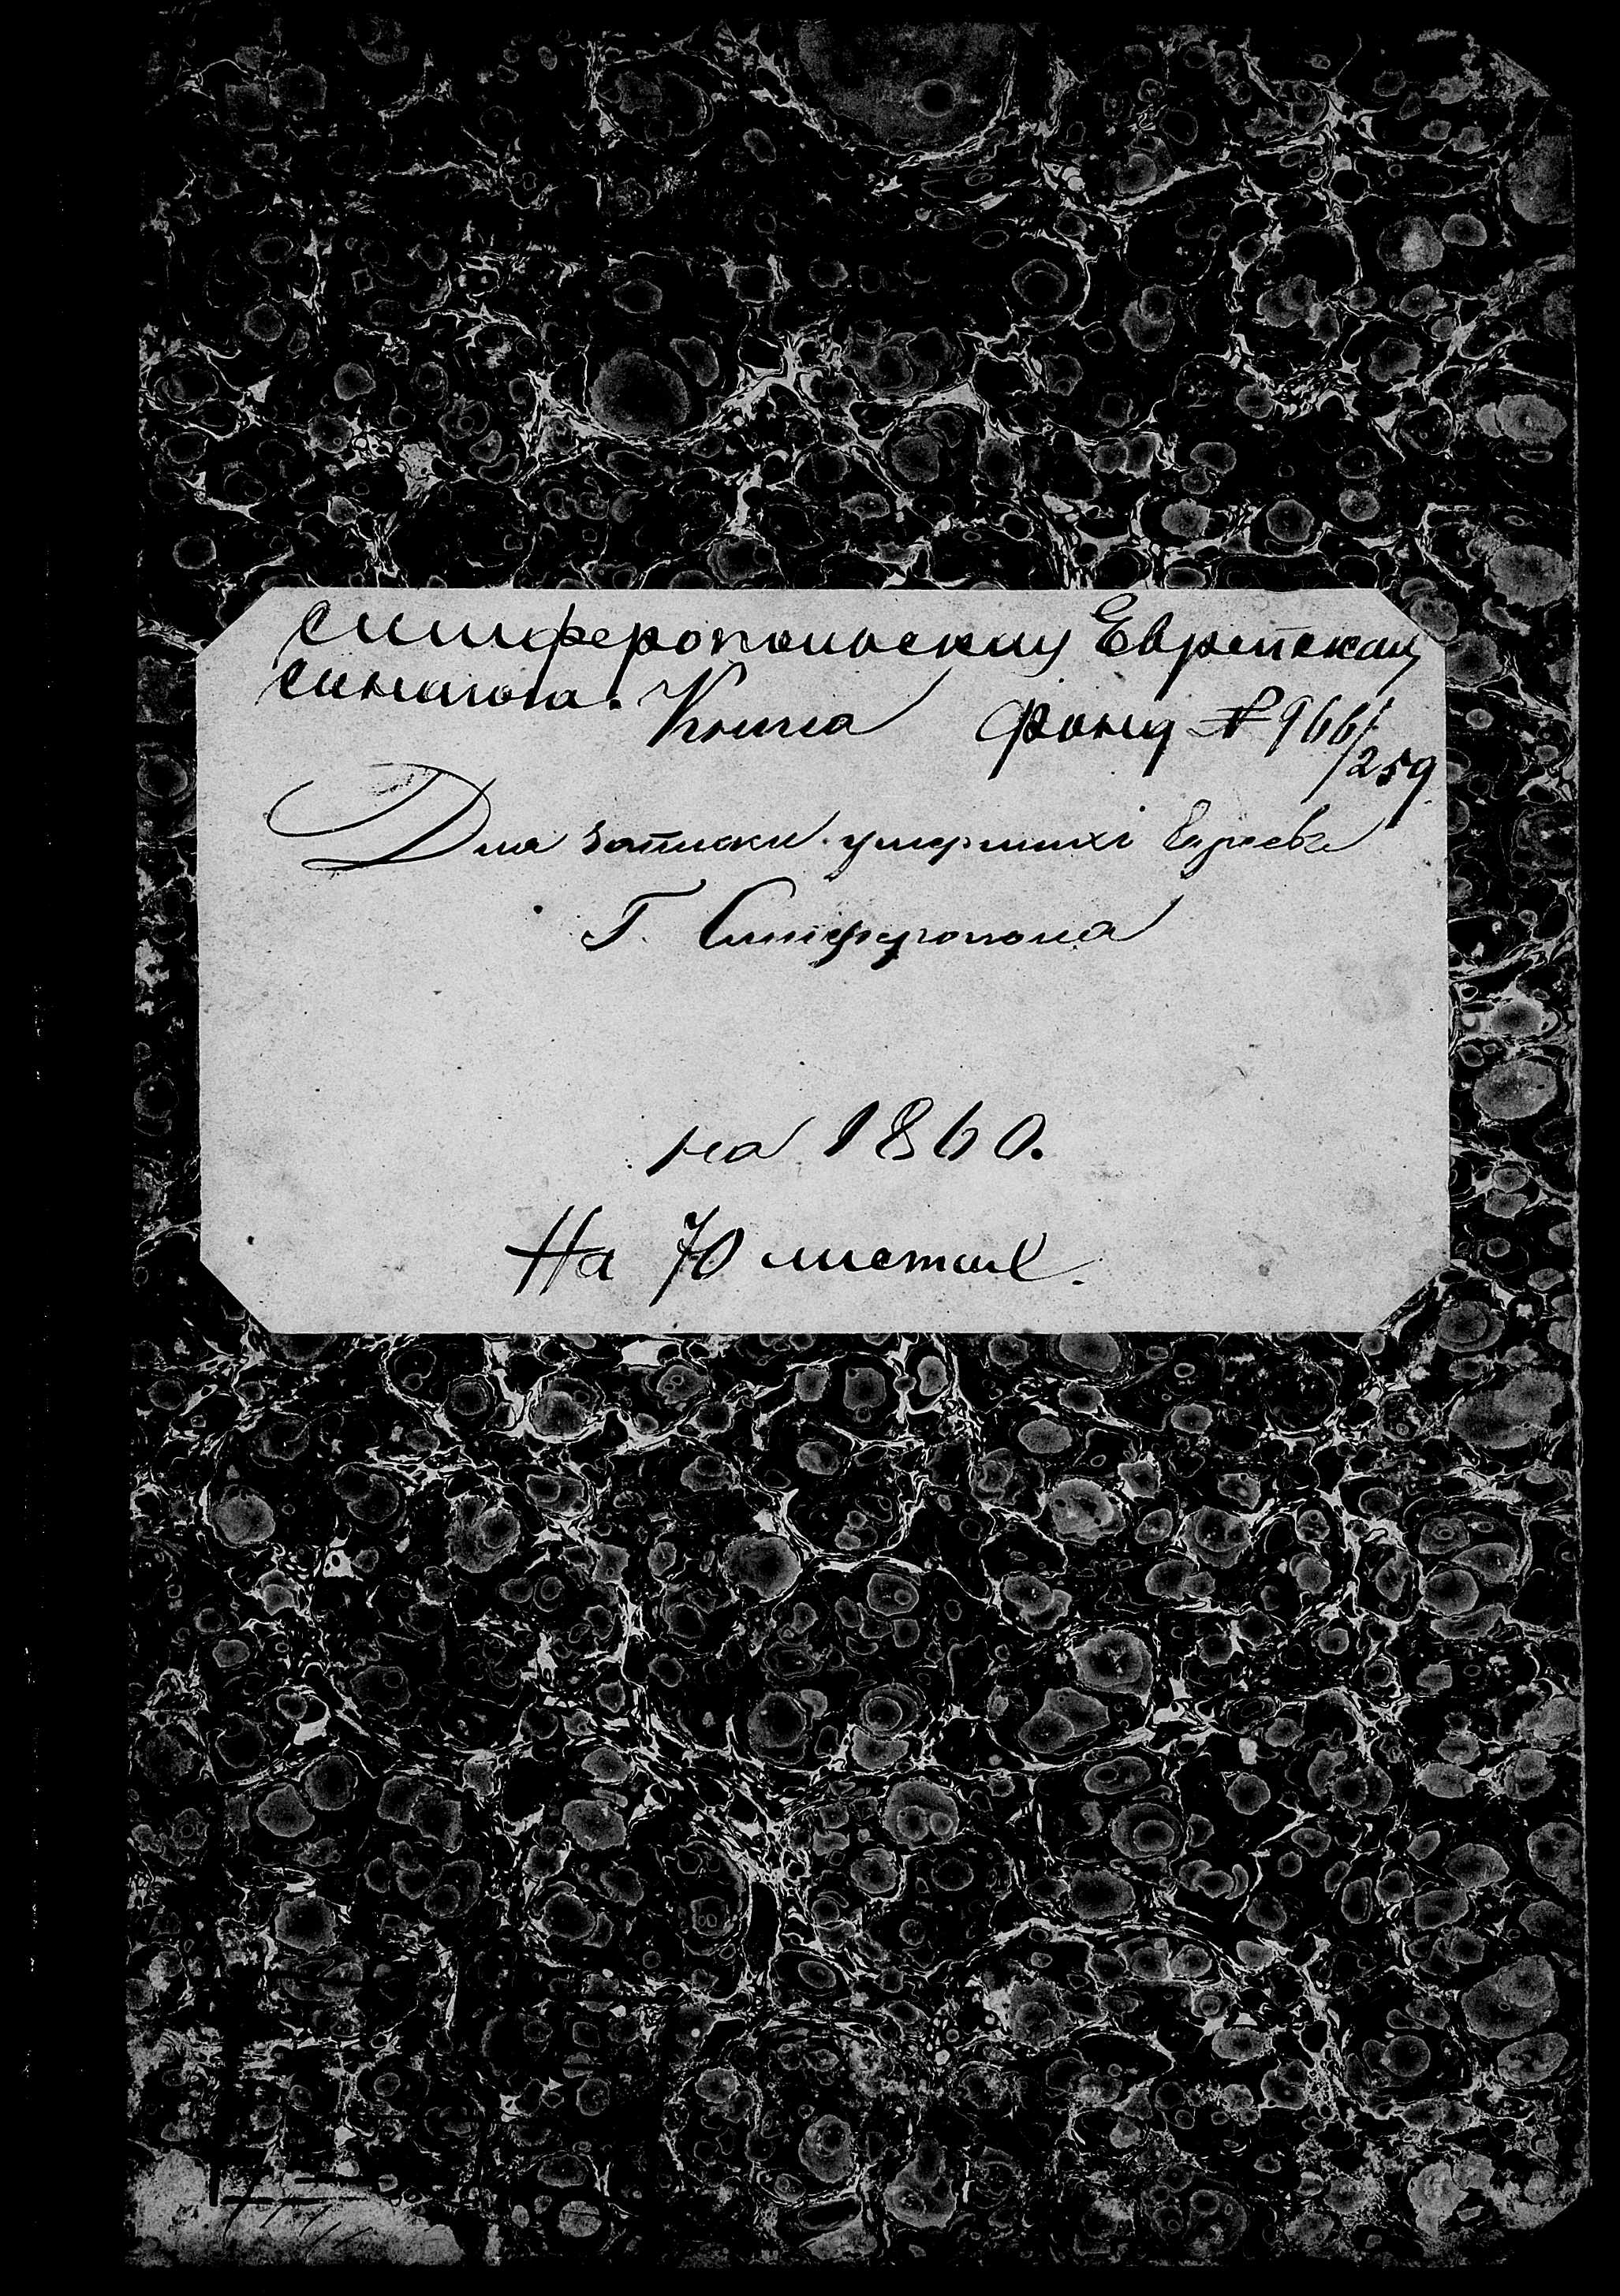 Симферопольская Еврейская
синагога. Книга фонд № 966/
/259
Для записки умершихъ Евреевъ
Г. Симферополя
на 1860.
На 70 листах.